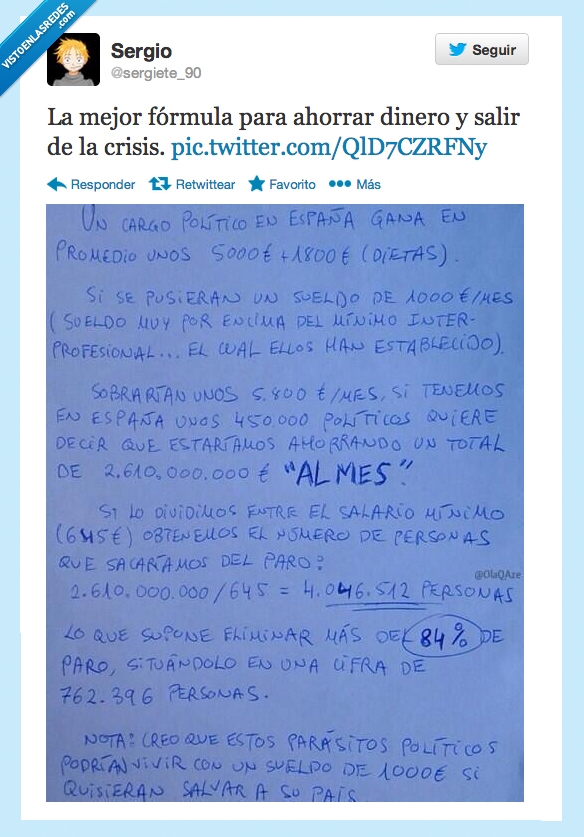 VISTOENLASREDES
.com
Sergio
@sergiete_90
Seguir
La mejor fórmula para ahorrar dinero y salir
de la crisis. pic.twitter.com/QlD7CZRFNy
Responder Retwittear Favorito Más
UN CARGO POLÍTICO EN ESPAÑA GANA EN
PROMEDIO UNOS 5000€ + 1800€ (DIETAS).
SI SE PUSIERAN UN SUELDO DE 1000€/MES
(SUELDO MUY POR ENCIMA DEL MÍNIMO INTER-
PROFESIONAL... EL CUAL ELLOS HAN ESTABLECIDO).
SOBRARÍAN UNOS 5.800 €/MES, SI TENEMOS
EN ESPAÑA UNOS 450.000 POLÍTICOS QUIERE
DECIR QUE ESTARÍAMOS AHORRANDO UN TOTAL
DE 2.610.000.000 € "AL MES".
SI LO DIVIDIMOS ENTRE EL SALARIO MÍNIMO
(645€) OBTENEMOS EL NÚMERO DE PERSONAS
QUE SACARÍAMOS DEL PARO:
@OlaQAze
2.610.000.000/645 = 4.046.512 PERSONAS
LO QUE SUPONE ELIMINAR MÁS DEL 84% DE
PARO, SITUÁNDOLO EN UNA CIFRA DE
762.396 PERSONAS.
NOTA: CREO QUE ESTOS PARÁSITOS POLÍTICOS
PODRÍAN VIVIR CON UN SUELDO DE 1000€ SI
QUISIERAN SALVAR A SU PAÍS